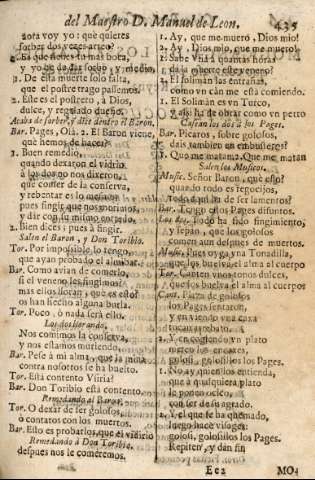 del Maestro D. Manuel de Leon. 435
aora voy yo: què quieres
sorber dos vezes arreo?
2. Es que tienes tu mas boca,
y yo he de dar sorbo y medio,
1. De esta muerte solo falta,
que el postre trago passemos.
2. Este es el postrero, à Dios,
dulce, y regalado dueño.
Acaba de sorber, y dize dentro el Baron.
Bar. Pages, Ola. 2. El Baron viene,
què hemos de hacer?
1. Buen remedio,
quando dexaron el vidrio
à los dos no nos dixeron,
que es de la conserva,
y rebentar es lo
pues fingir que nos moriamos,
y dàr con su mismo enredo.
2. Bien dices; pues à fingir.
Salen el Baron, y Don Toribio.
Tor. Por impossible lo tengo,
que ayan probado el almibar.
Bar. Como avian de comerlo,
si el veneno les fingimos?
mas ellos lloran; què es esso?
os han hecho alguna burla.
Tor. Poco, ò nada serà ello.
Los dos llorando.
Nos comimos la conserva,
y nos estamos muriendo.
Bar. Pese à mi alma, que la mina
contra nosotros se ha buelto.
Tor. Està contento Viiria?
Bar. Don Toribio està contento.
Remedando al Baron.
Tor. O dexar de ser golosos,
ò contatos con los muertos.
Bar. Esto es probarlos, que el vidirio
Remedando à Don Toribio.
despues nos le comèremos.
1. Ay, que me muero, Dios mio!
2. Ay, Dios mio, que me muero!
1. Sabe Vñà à quantas horas
dà la muerte este veneno?
2. El Soliman las entrañas,
como vn càn me està comiendo.
1. El Solimàn es vn Turco,
y assi ha de obrar como vn perro
Cascan los dos à los Pages.
Bar. Picaros, sobre golosos,
dais tambien en embusteros?
1. Que me matan. 2. Que me matan
Salen los Musicos.
Music. Señor Baron, què es esto?
quando todo es regocijos,
Todo aqui ha de ser lamentos?
Bar. Tengo los Pages difuntos.
Los dos. Todo ha sido fingimiento,
y sepan, que los golosos
comen aun despues de muertos.
Music. Pues oyga vna Tonadilla,
que les buelva el alma al cuerpo
Tor. Canten vnos tonos dulces,
que los buelva el alma al cuerpo
Cant. Plaza de golosos
los Pages sentaron,
y en viendo vna caxa
tocan
2. Y en cogiendo vn plato
golosi, golosillos los Pages.
1. No ay quien los entienda,
que à qualquiera plato
le ponen ocico,
con ser de su agrado.
2. Y el que se ha quemado,
luego hace visages:
golosi, golosillos los Pages.
Repiten, y dàn fin
Ee2 MO-